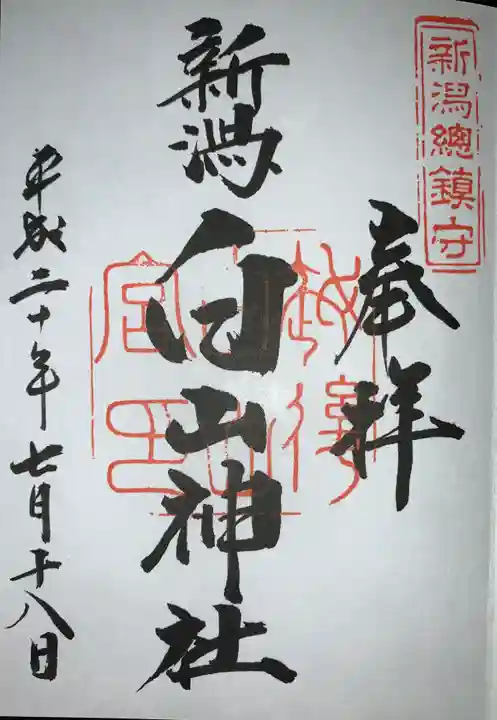 新潟總鎮守
奉拝
新潟
白山神社
越後
白山
宮印
平成二十年七月十八日